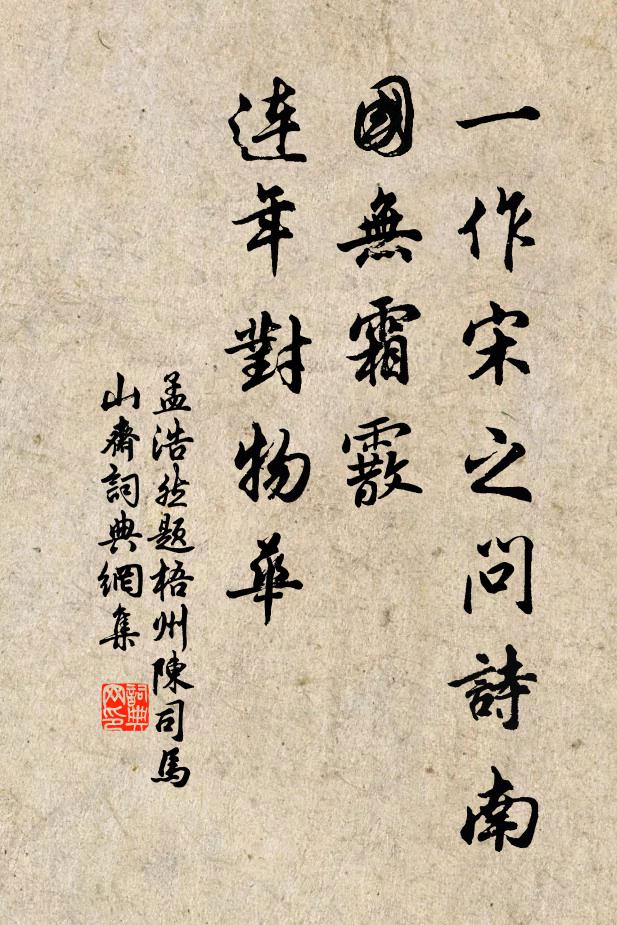 一作宋之问詩南
國無霜霰
連年對物華
孟浩然題梧州陳司馬
山齋詞典網集
詞典
网印